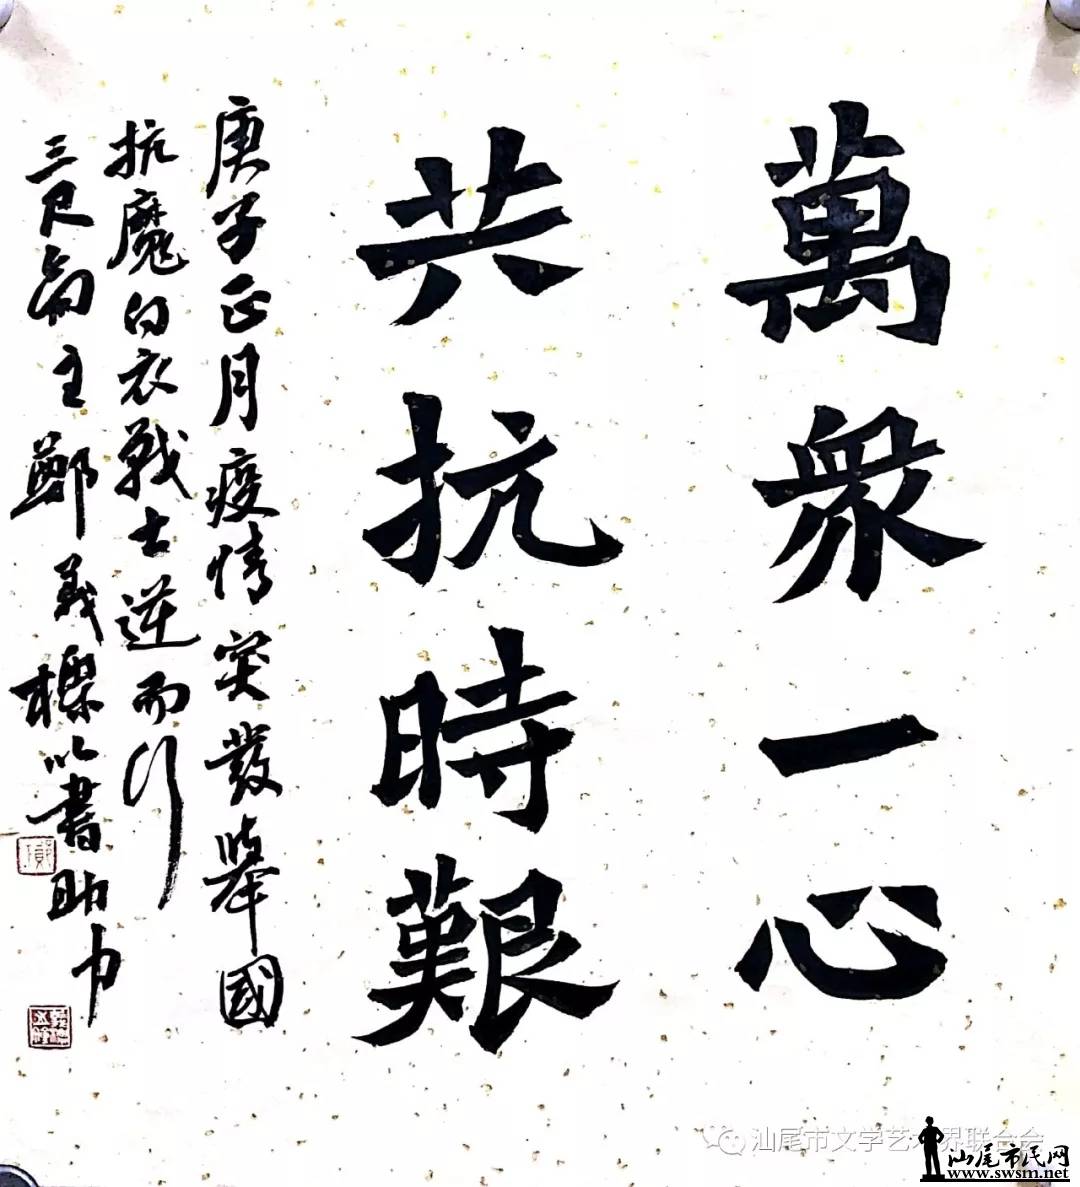 萬衆一心
共抗時艱
庚子正月疫情突發舉國
抗魔白衣戰士逆而行
三尺斋主鄭義標以書助力
汕尾市文学艺术界联合会
汕尾市民网
www.swsm.net